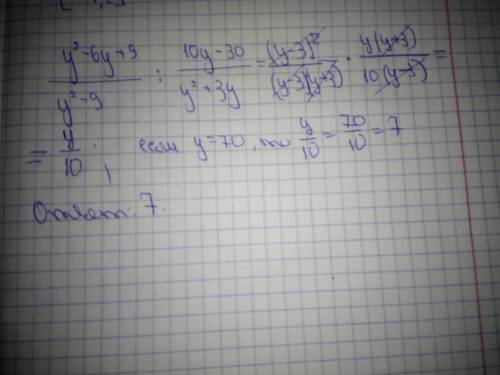 y²-6y+9 / y²-9 : 10y-30 / y²+3y = (y-3)² / (y-3)(y+3) · y(y+3) / 10(y-3) =
= y/10, если y=70, то y/10 = 70/10 = 7
Ответ: 7.